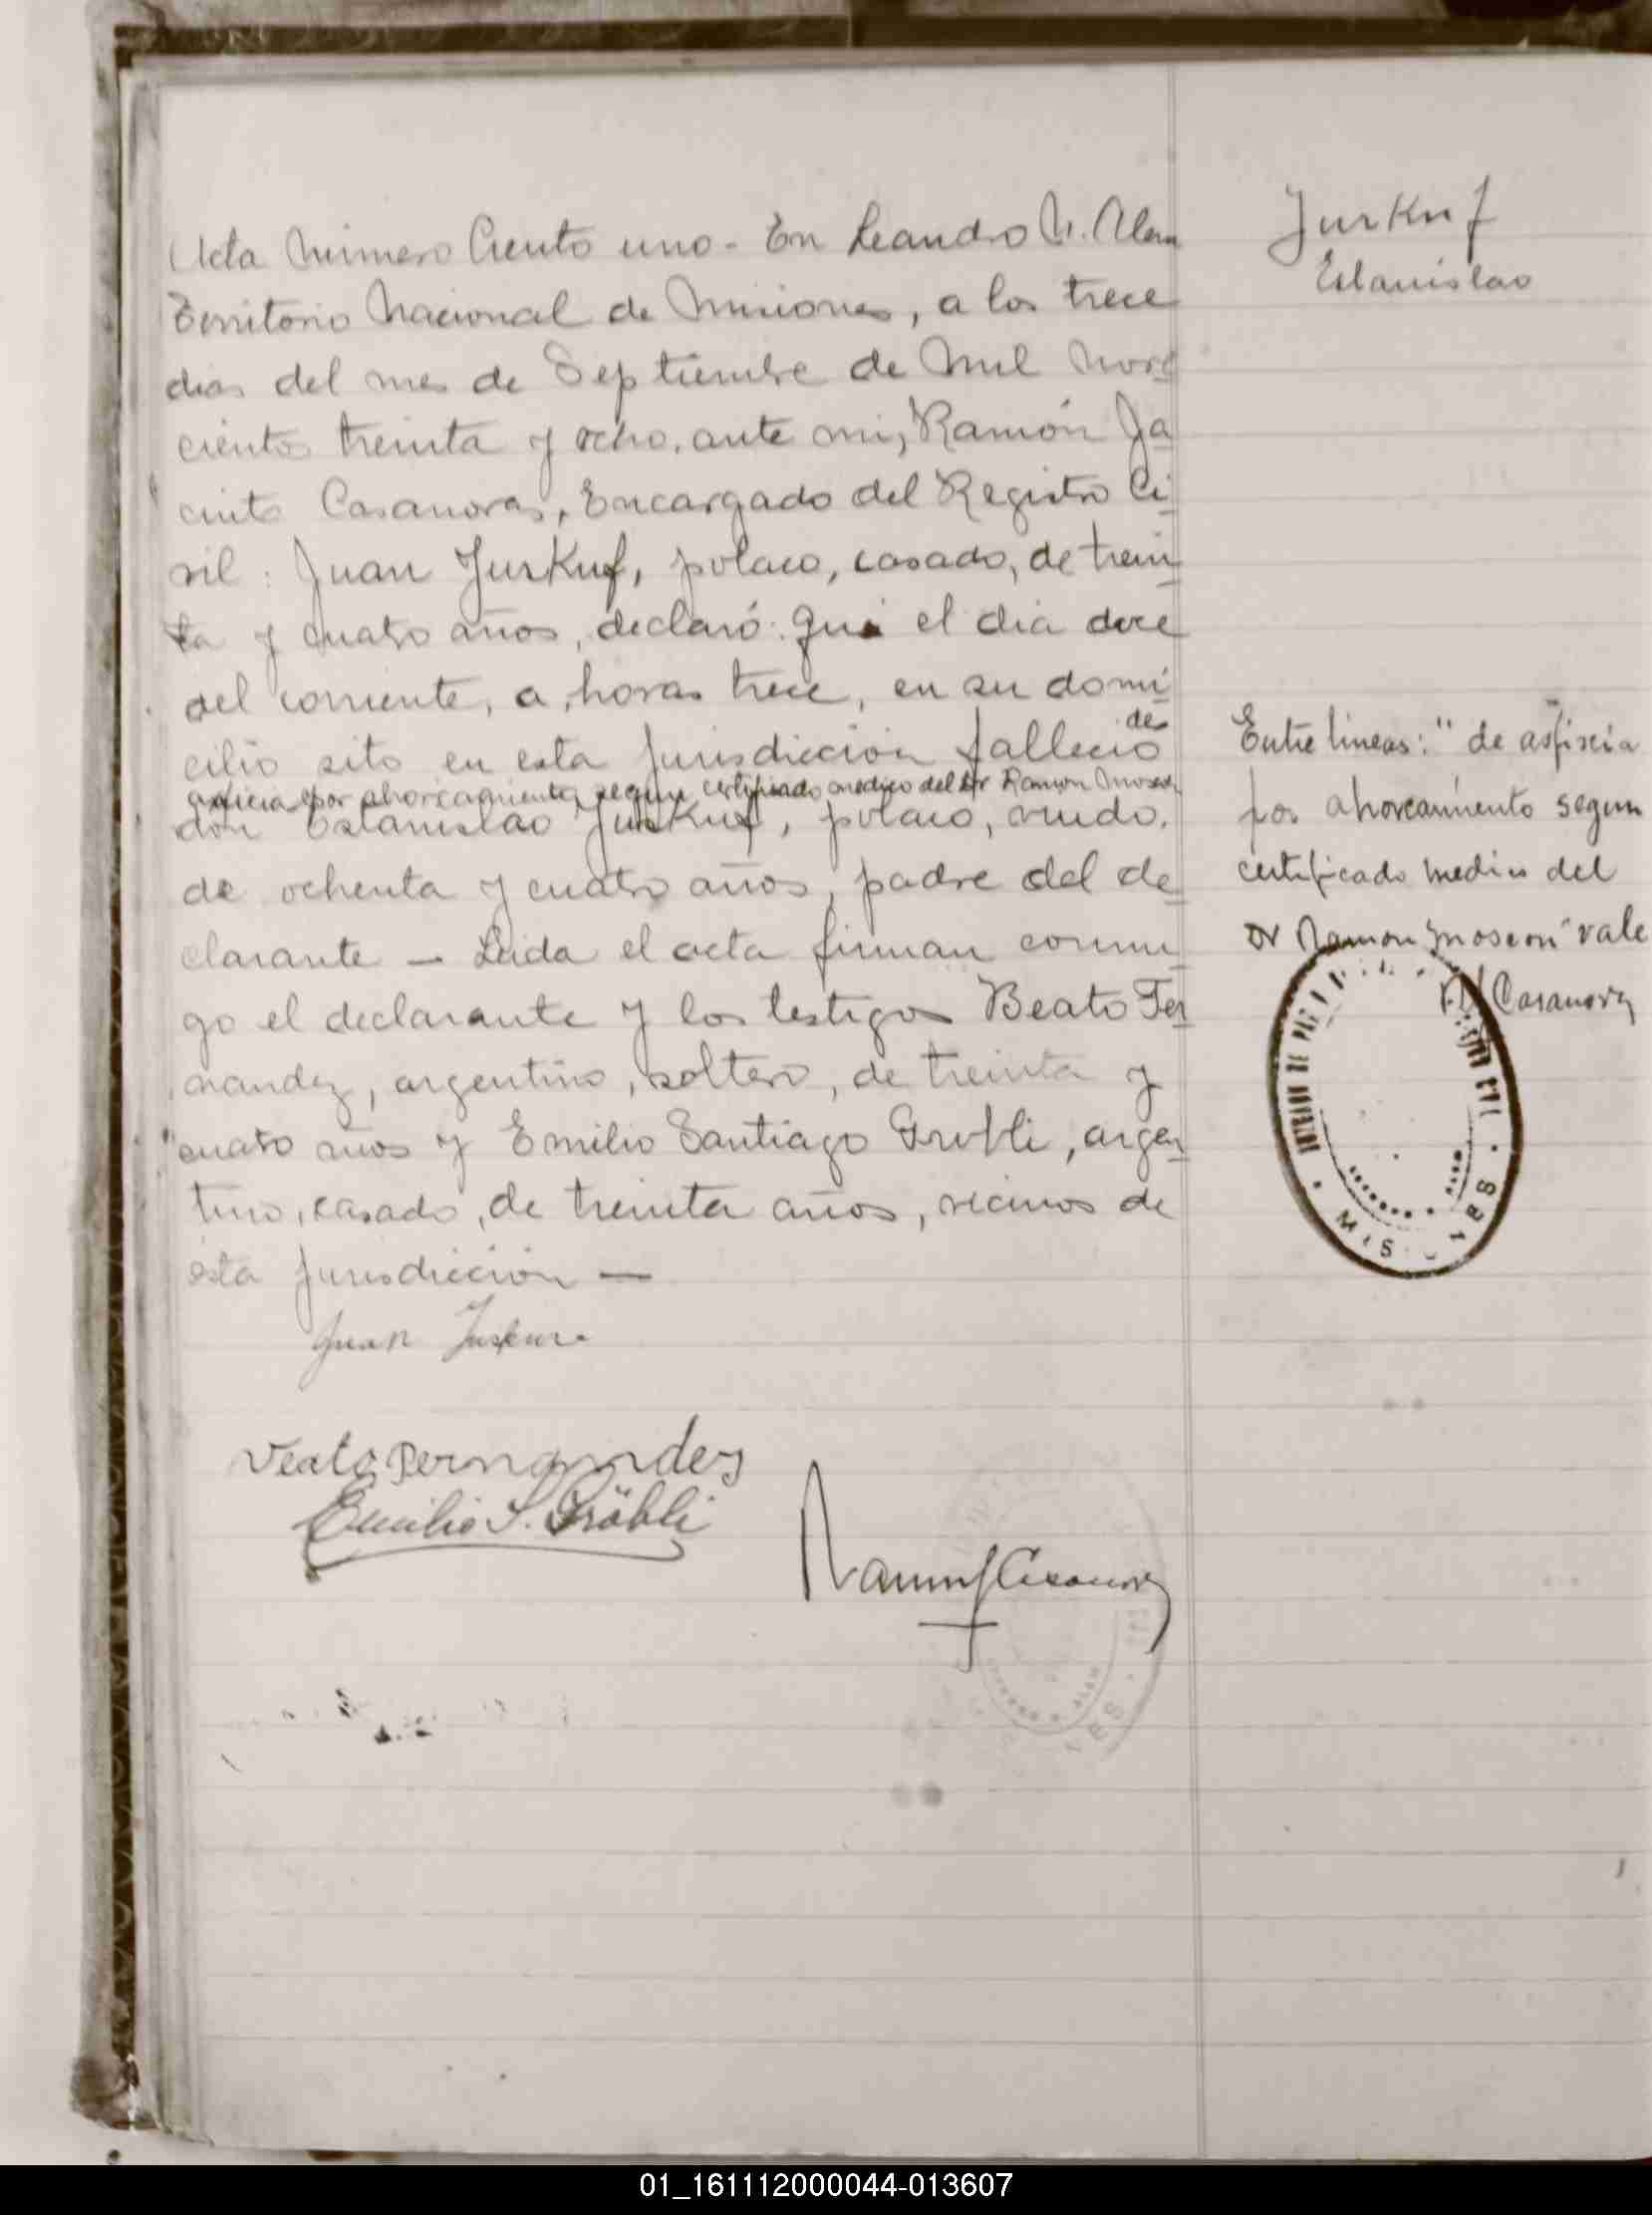 Acta Número Ciento uno - En Leandro N. Alem
Territorio Nacional de Misiones, a los trece
dias del mes de Septiembre de Mil nove
cientos treinta y ocho, ante mi, Ramón Ja
cinto Casanova, Encargado del Registro Ci
vil: Juan Jurkuf, polaco, casado, de trein
ta y cuatro años, declaró: Que el dia doce
del corriente, a horas trece, en su domi
cilio sito en esta jurisdicción falleció de
asficia por ahorcamiento, segun certificado medico del Dr Ramon Moseon
don Estanislao Jurkuf, polaco, viudo,
de ochenta y cuatro años, padre del de
clarante — Leida el acta firman conmi
go el declarante y los testigos Beato Fer
nandez, argentino, soltero, de treinta y
cuatro años y Emilio Santiago Grobli, argen
tino, casado, de treinta años, vecinos de
esta jurisdicción —
Juan
Veato Fernandez
Emilio S. Gröbli
Ramon J Casanova
Jurkuf
Estanislao
Entre lineas: "de asfixia
por ahorcamiento segun
certificado medico del
Dr Ramon Moseon" vale
R J Casanova
01_161112000044-013607